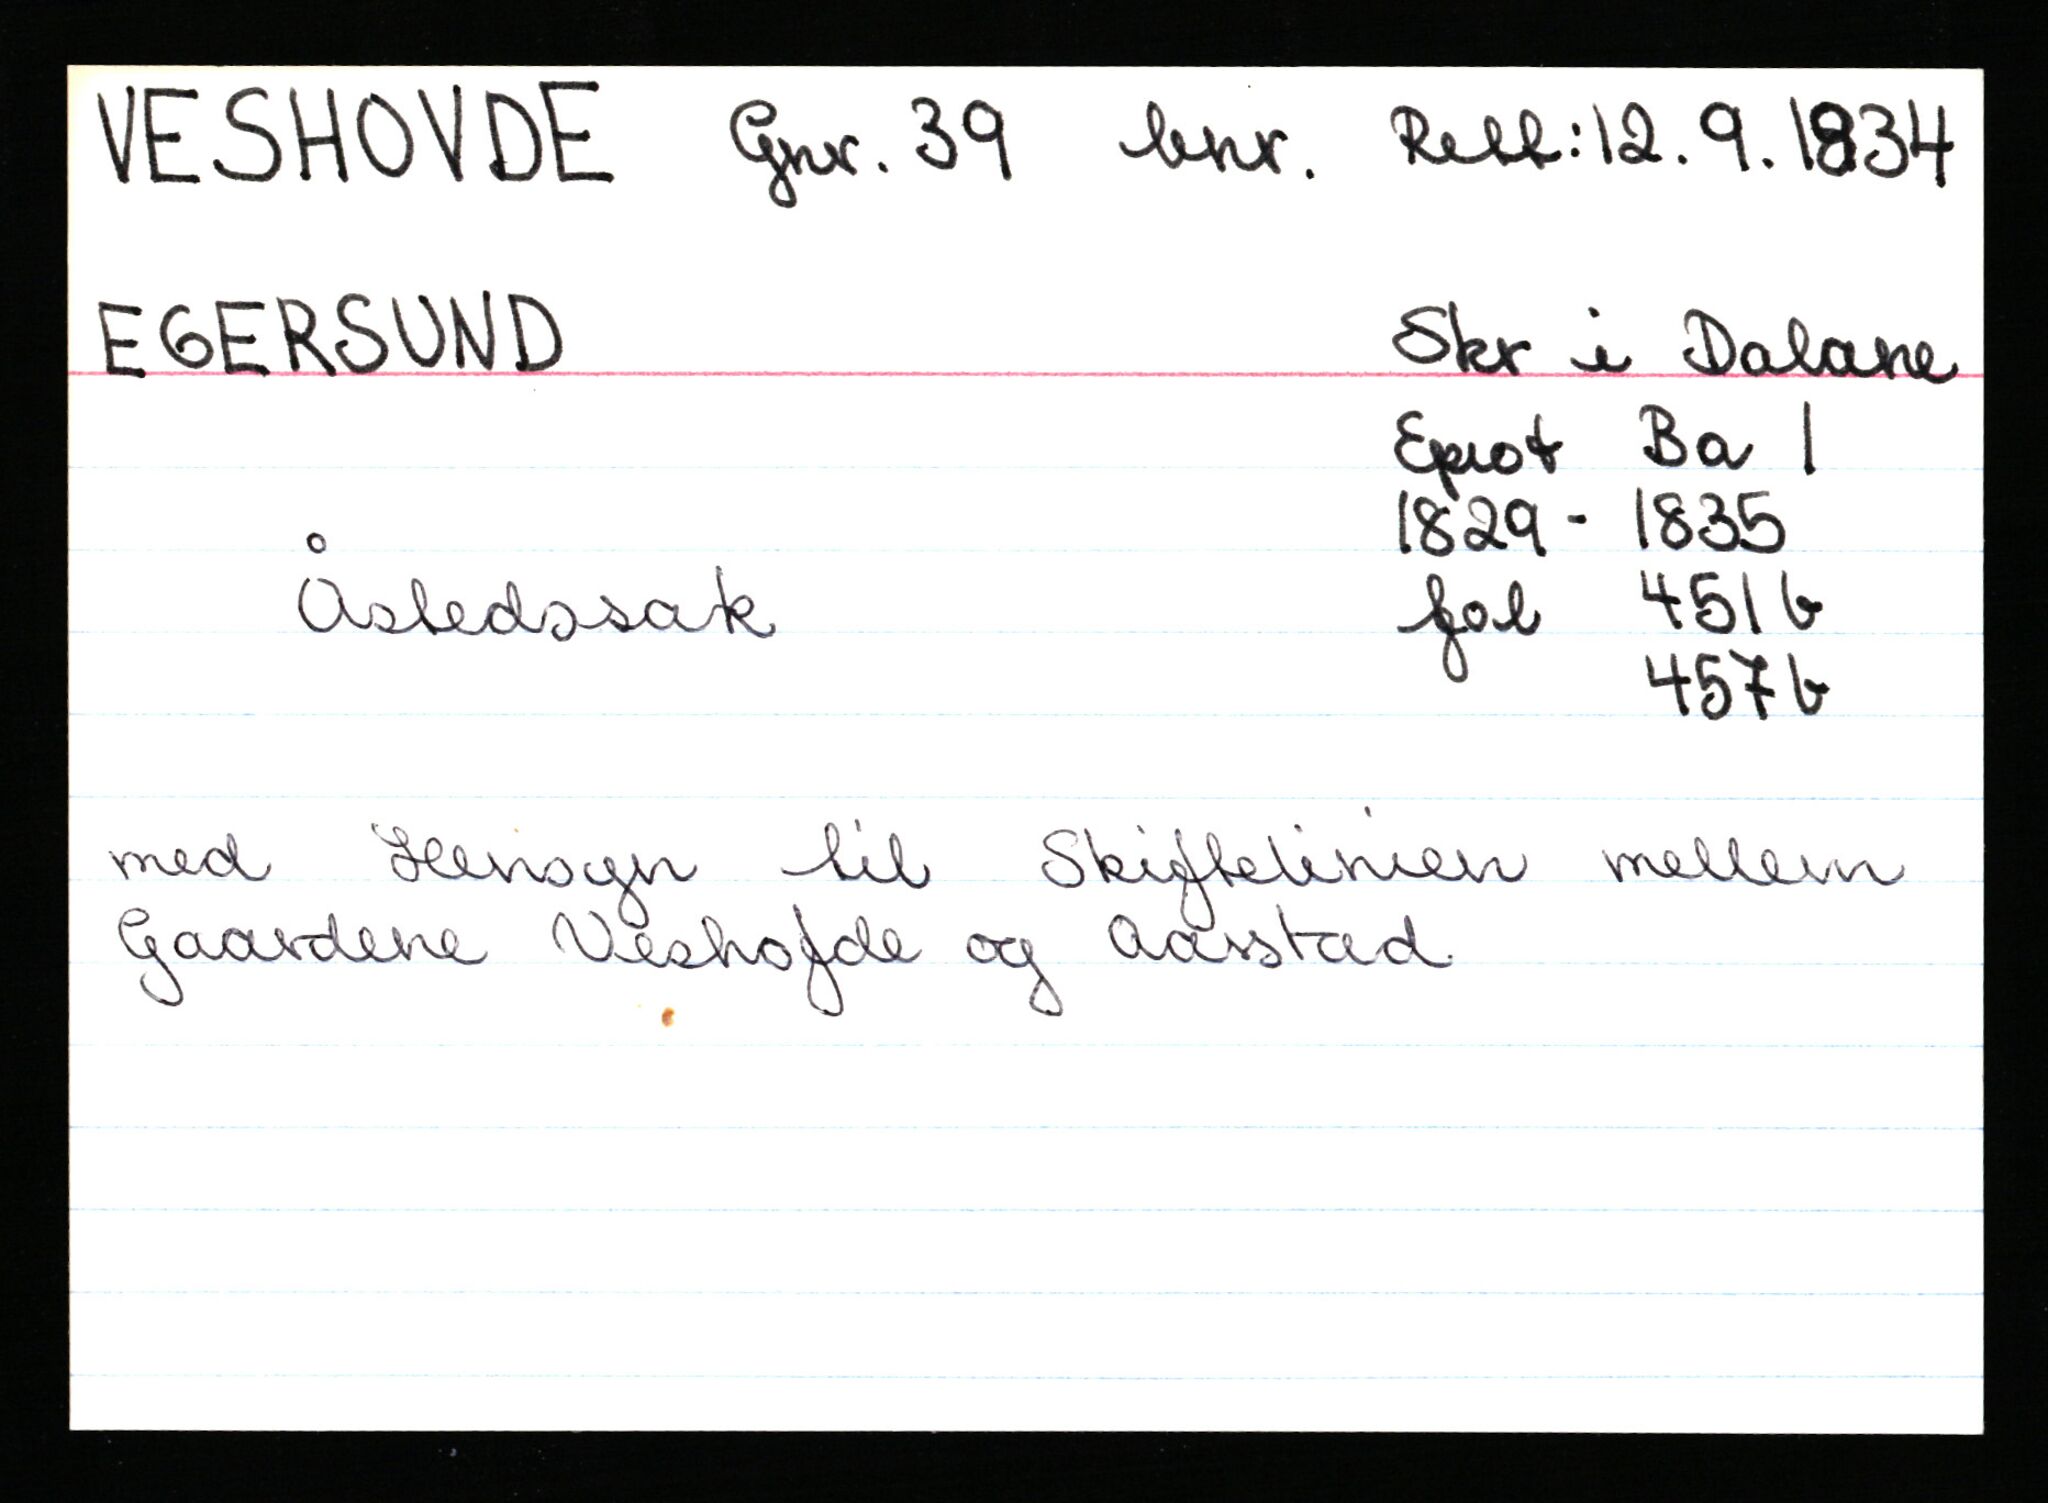 VESHOVDE Gnr. 39 bnr. Rett: 12.9.1834
EGERSUND Skr i Dalane
Eprot Ba 1
1829 - 1835
Åstedssak fol 451 b
457 b
med Hensyn til Skiftelinien mellem
Gaardene Veshofde og Aarstad